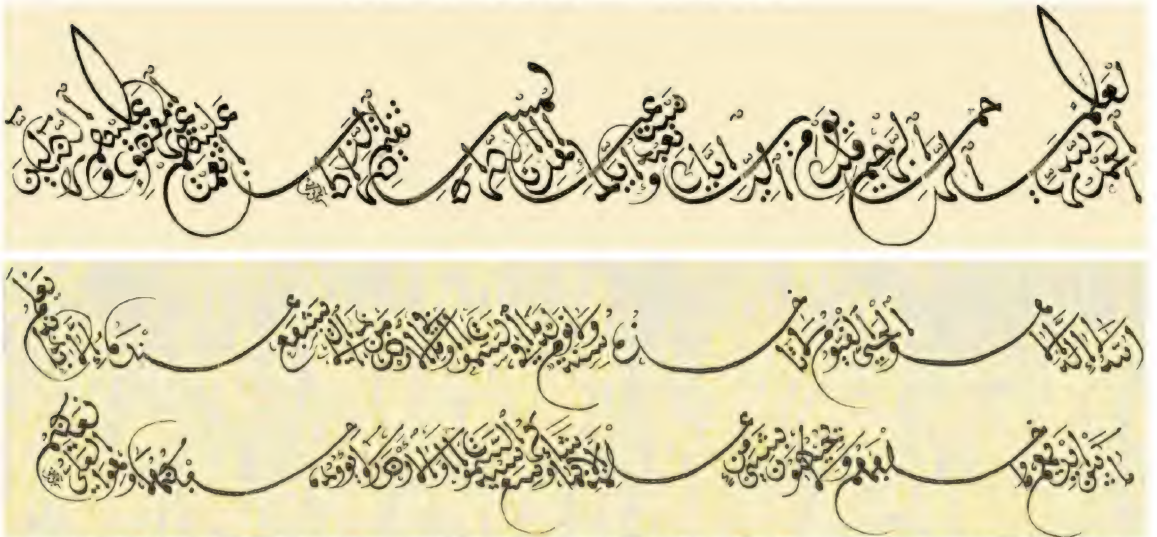 الحمد لله رب العلمين الرحمن الرحيم ملك يوم الدين اياك نعبد واياك نستعين اهدنا الصراط المستقيم صراط الذين انعمت عليهم غير المغضوب عليهم ولا الضالين
الله لا اله الا هو الحي القيوم لا تأخذه سنة ولا نوم له ما في السموات وما في الارض من ذا الذي يشفع عنده الا باذنه يعلم
ما بين ايديهم وما خلفهم ولا يحيطون بشيء من علمه الا بما شاء وسع كرسيه السموات والارض ولا يؤده حفظهما وهو العلي العظيم